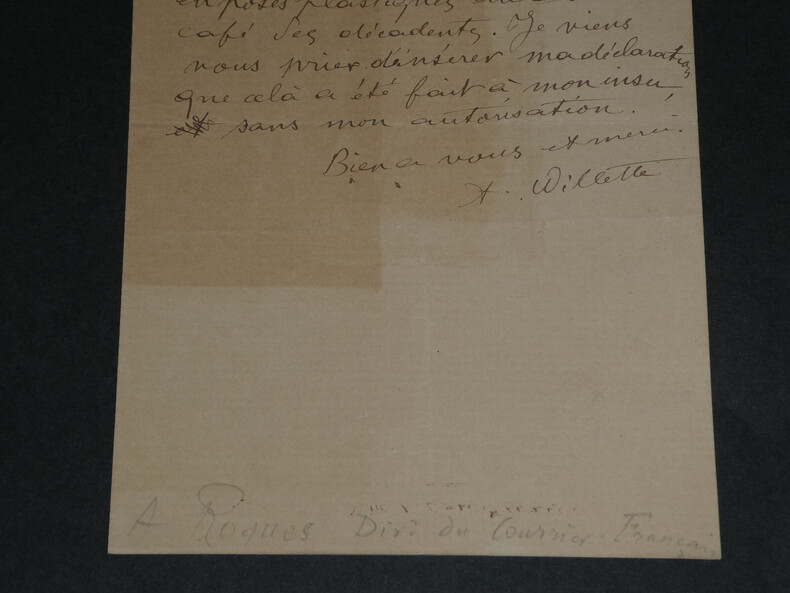 en poses plastiques
café des décadents. Je viens
vous prier d'insérer ma déclaration
que celà a été fait à mon insu
sans mon autorisation.
Bien a vous et merci.
A. Willette
A Roques Dir. du Courrier-Français